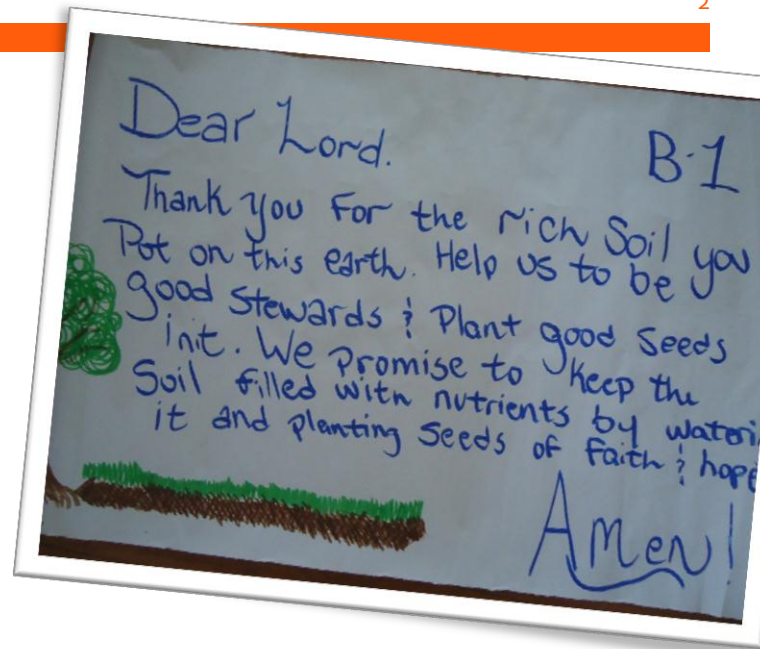 2
Dear Lord.
B-1
Thank you For the rich Soil you
Pot on this earth. Help us to be
good Stewards & Plant good Seeds
init. We Promise to Keep the
Soil filled with nutrients by wateri
it and planting Seeds of Faith & hope
Amen!